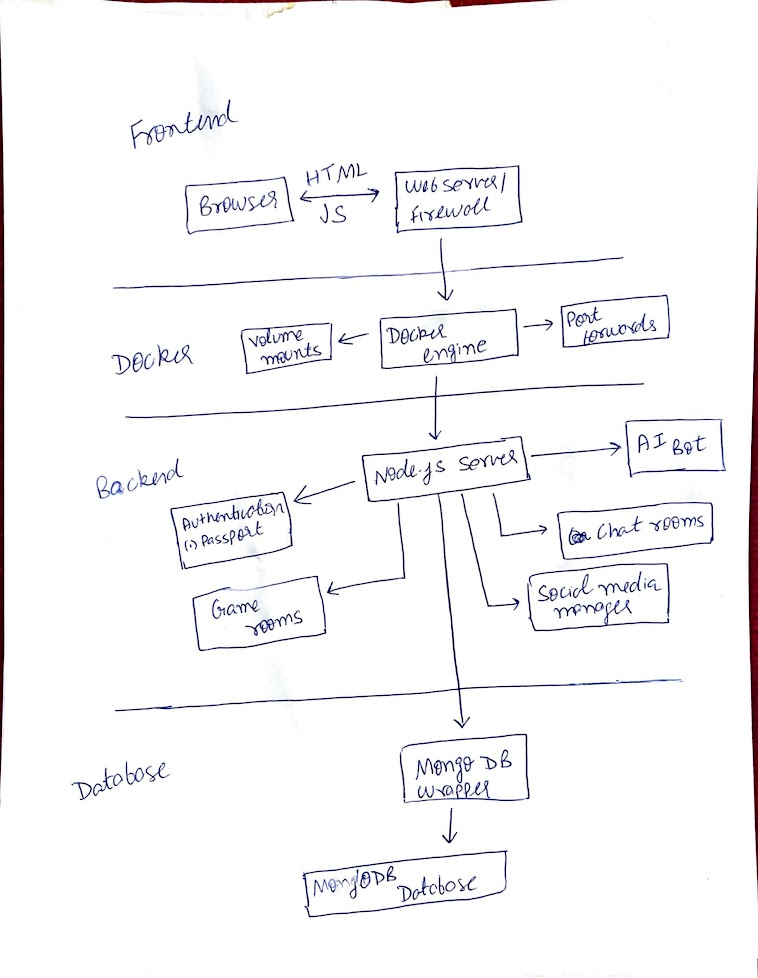 Frontend
Browser
HTML
JS
Web server/
firewall
Docker
Volume
mounts
Docker
engine
Port
forwards
Backend
Node.js server
AI Bot
Authentication
(1) Passport
Chat rooms
Game
rooms
Social media
manager
Database
Mongo DB
wrapper
MongoDB
Database